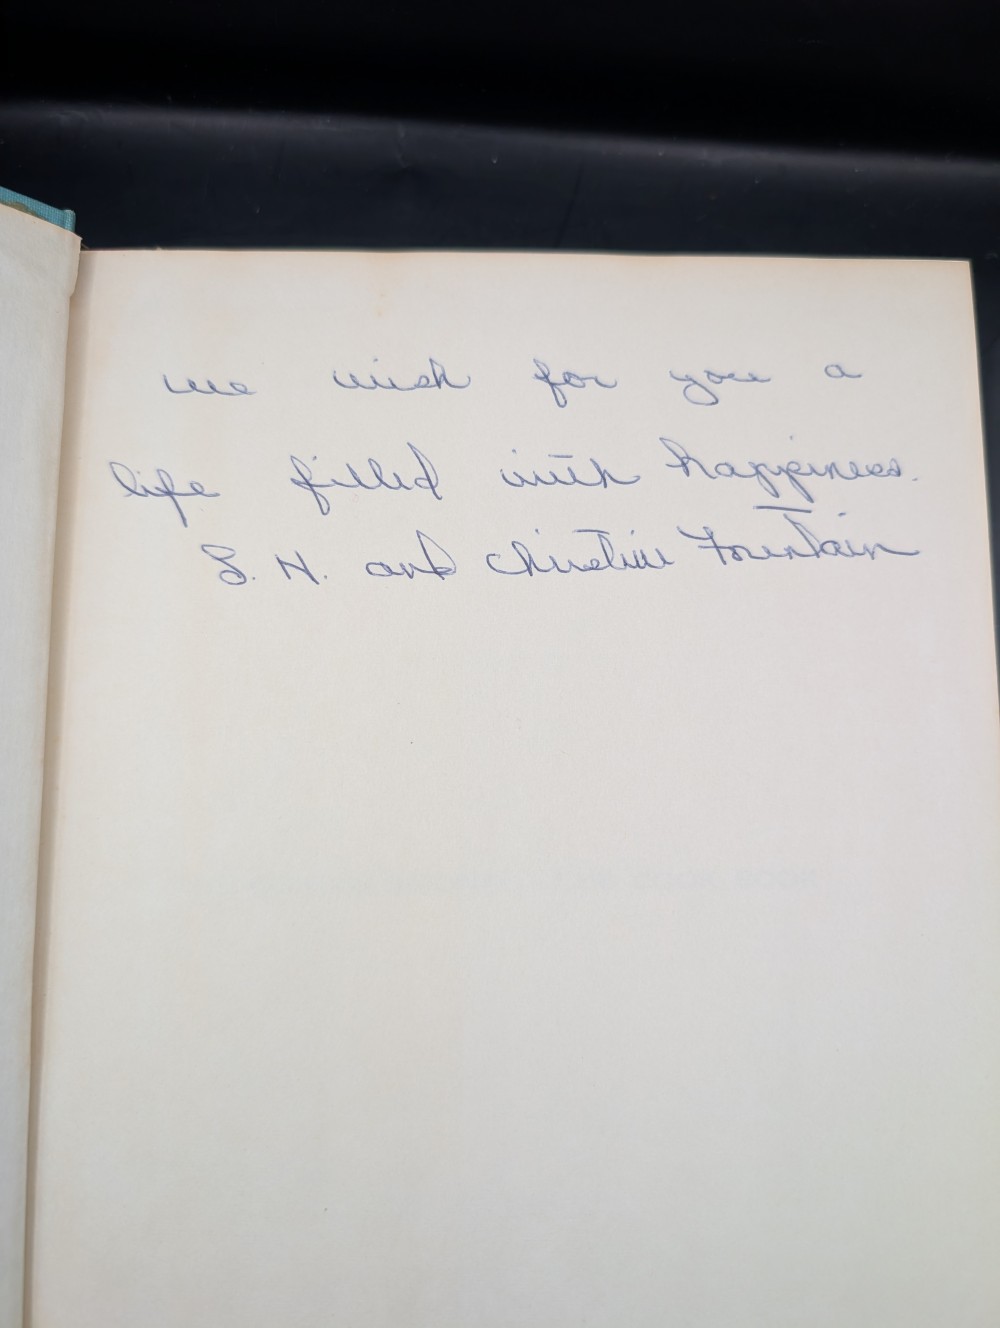 we wish for you a
life filled with happiness.
S. H. and Christine Fountain